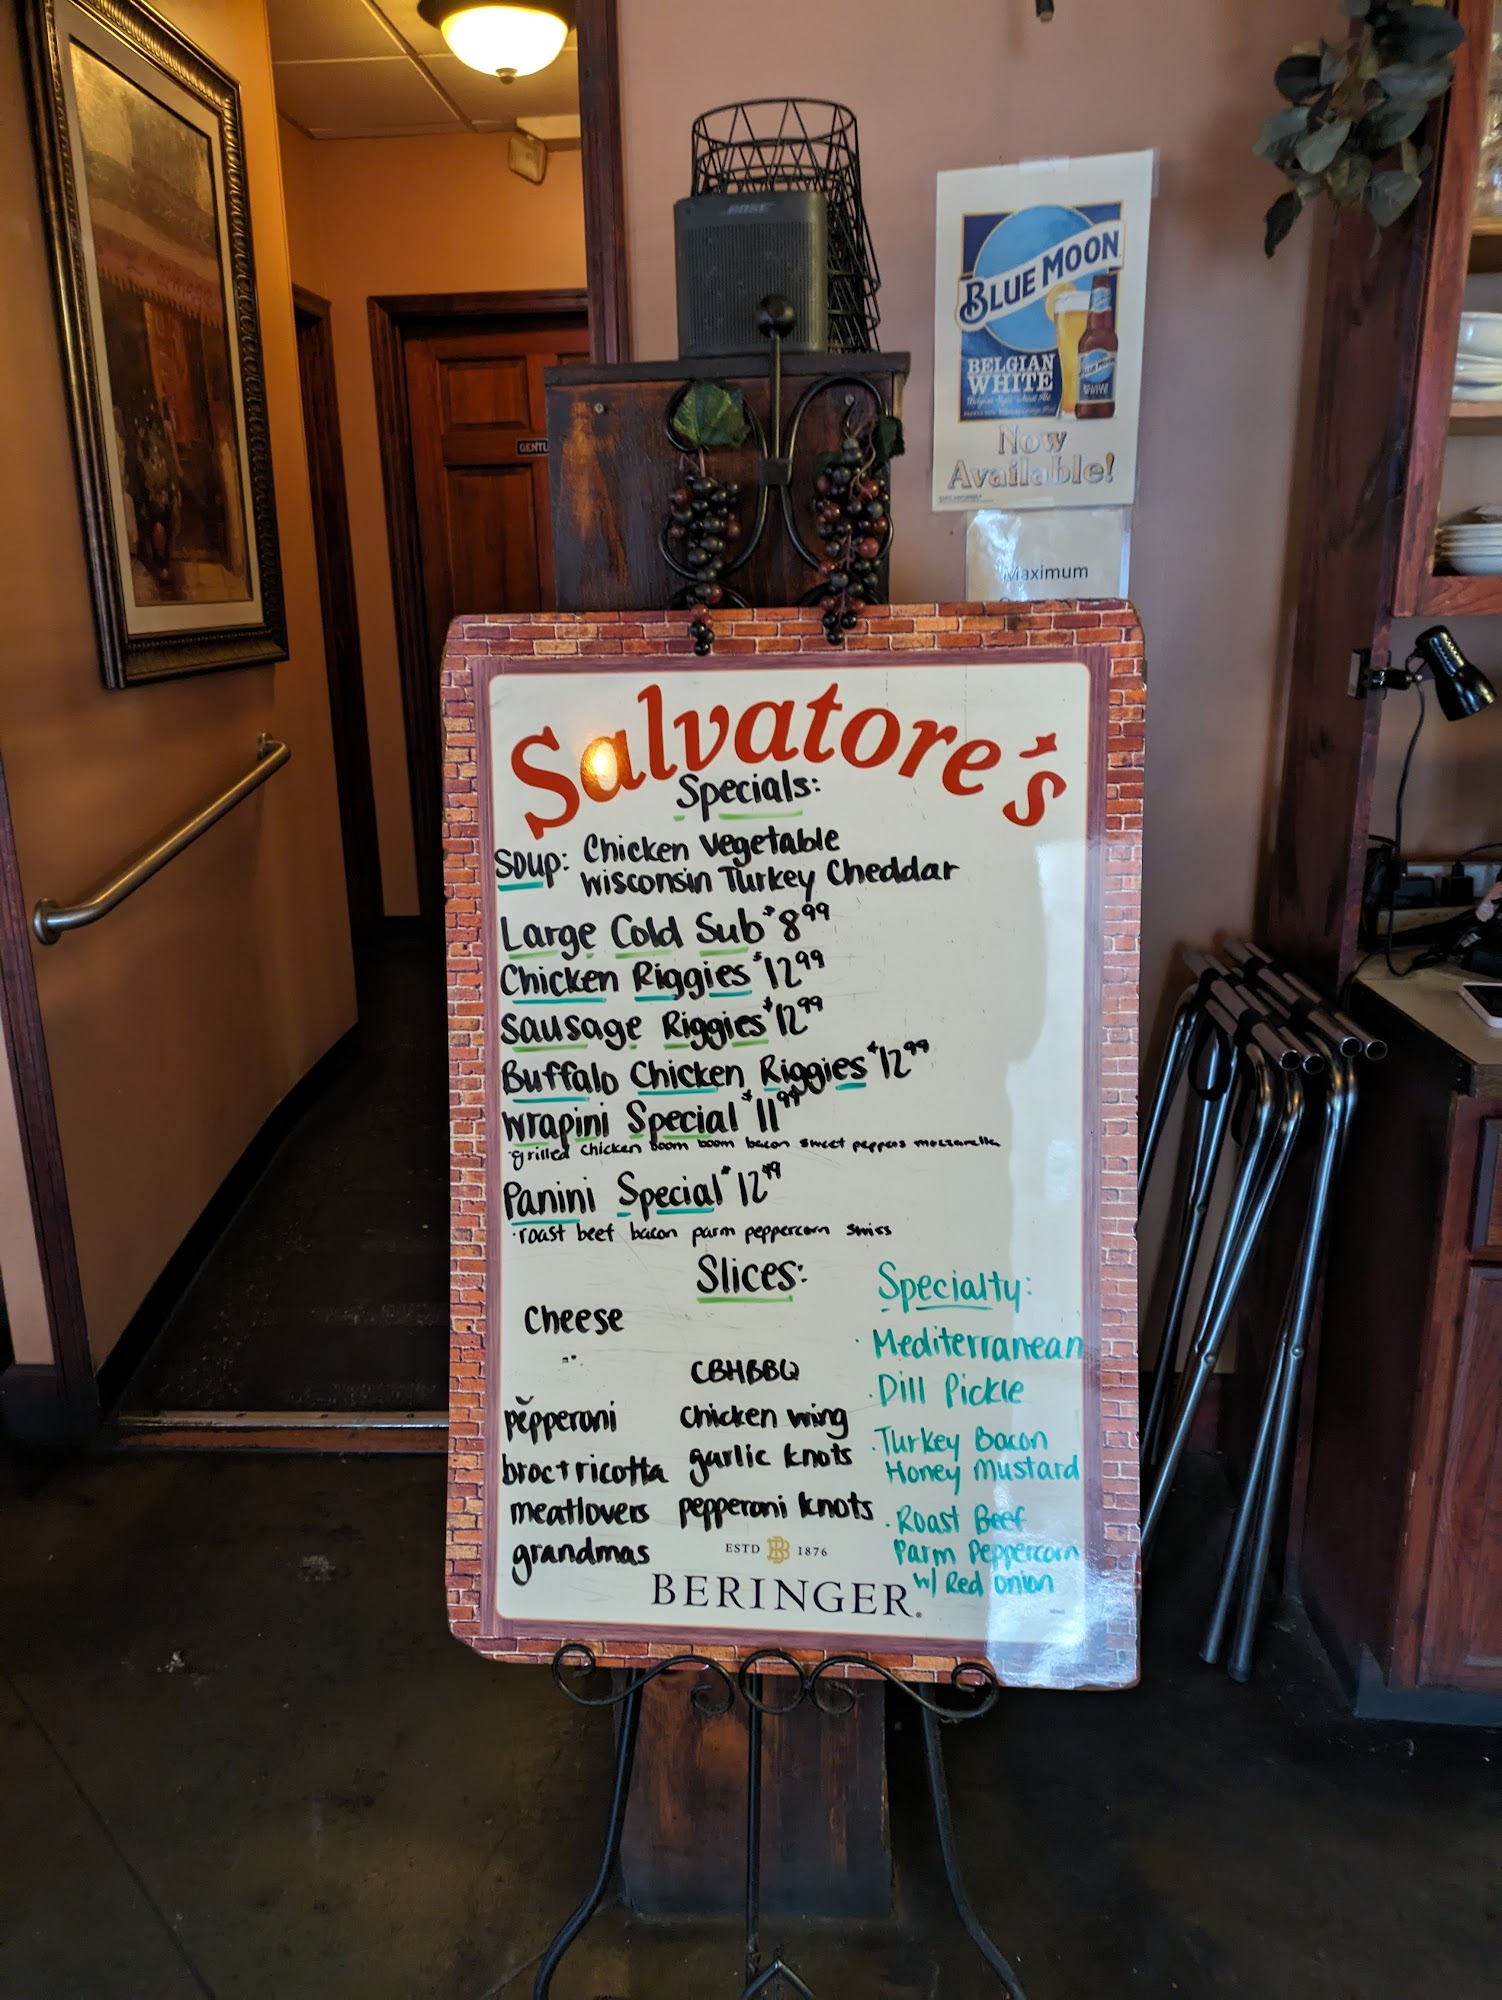 BOSE
BLUE MOON
BELGIAN
WHITE
Belgian Style Wheat Ale
BLUE MOON
Now
Available!
GENTL
Maximum
Salvatore's
Specials:
Soup: Chicken Vegetable
Wisconsin Turkey Cheddar
Large Cold Sub $8.99
Chicken Riggies $12.99
Sausage Riggies $12.99
Buffalo Chicken Riggies $12.99
Wrapini Special $11.99
·grilled chicken boom boom bacon sweet peppers mozzarella
Panini Special $12.99
·roast beef bacon parm peppercorn swiss
Slices:
Cheese
pepperoni
broc + ricotta
meatlovers
grandmas
CBHBBQ
Chicken wing
garlic knots
pepperoni knots
Specialty:
· Mediterranean
· Dill Pickle
· Turkey Bacon
Honey Mustard
· Roast Beef
Parm Peppercorn
w/ Red onion
ESTD B 1876
BERINGER®